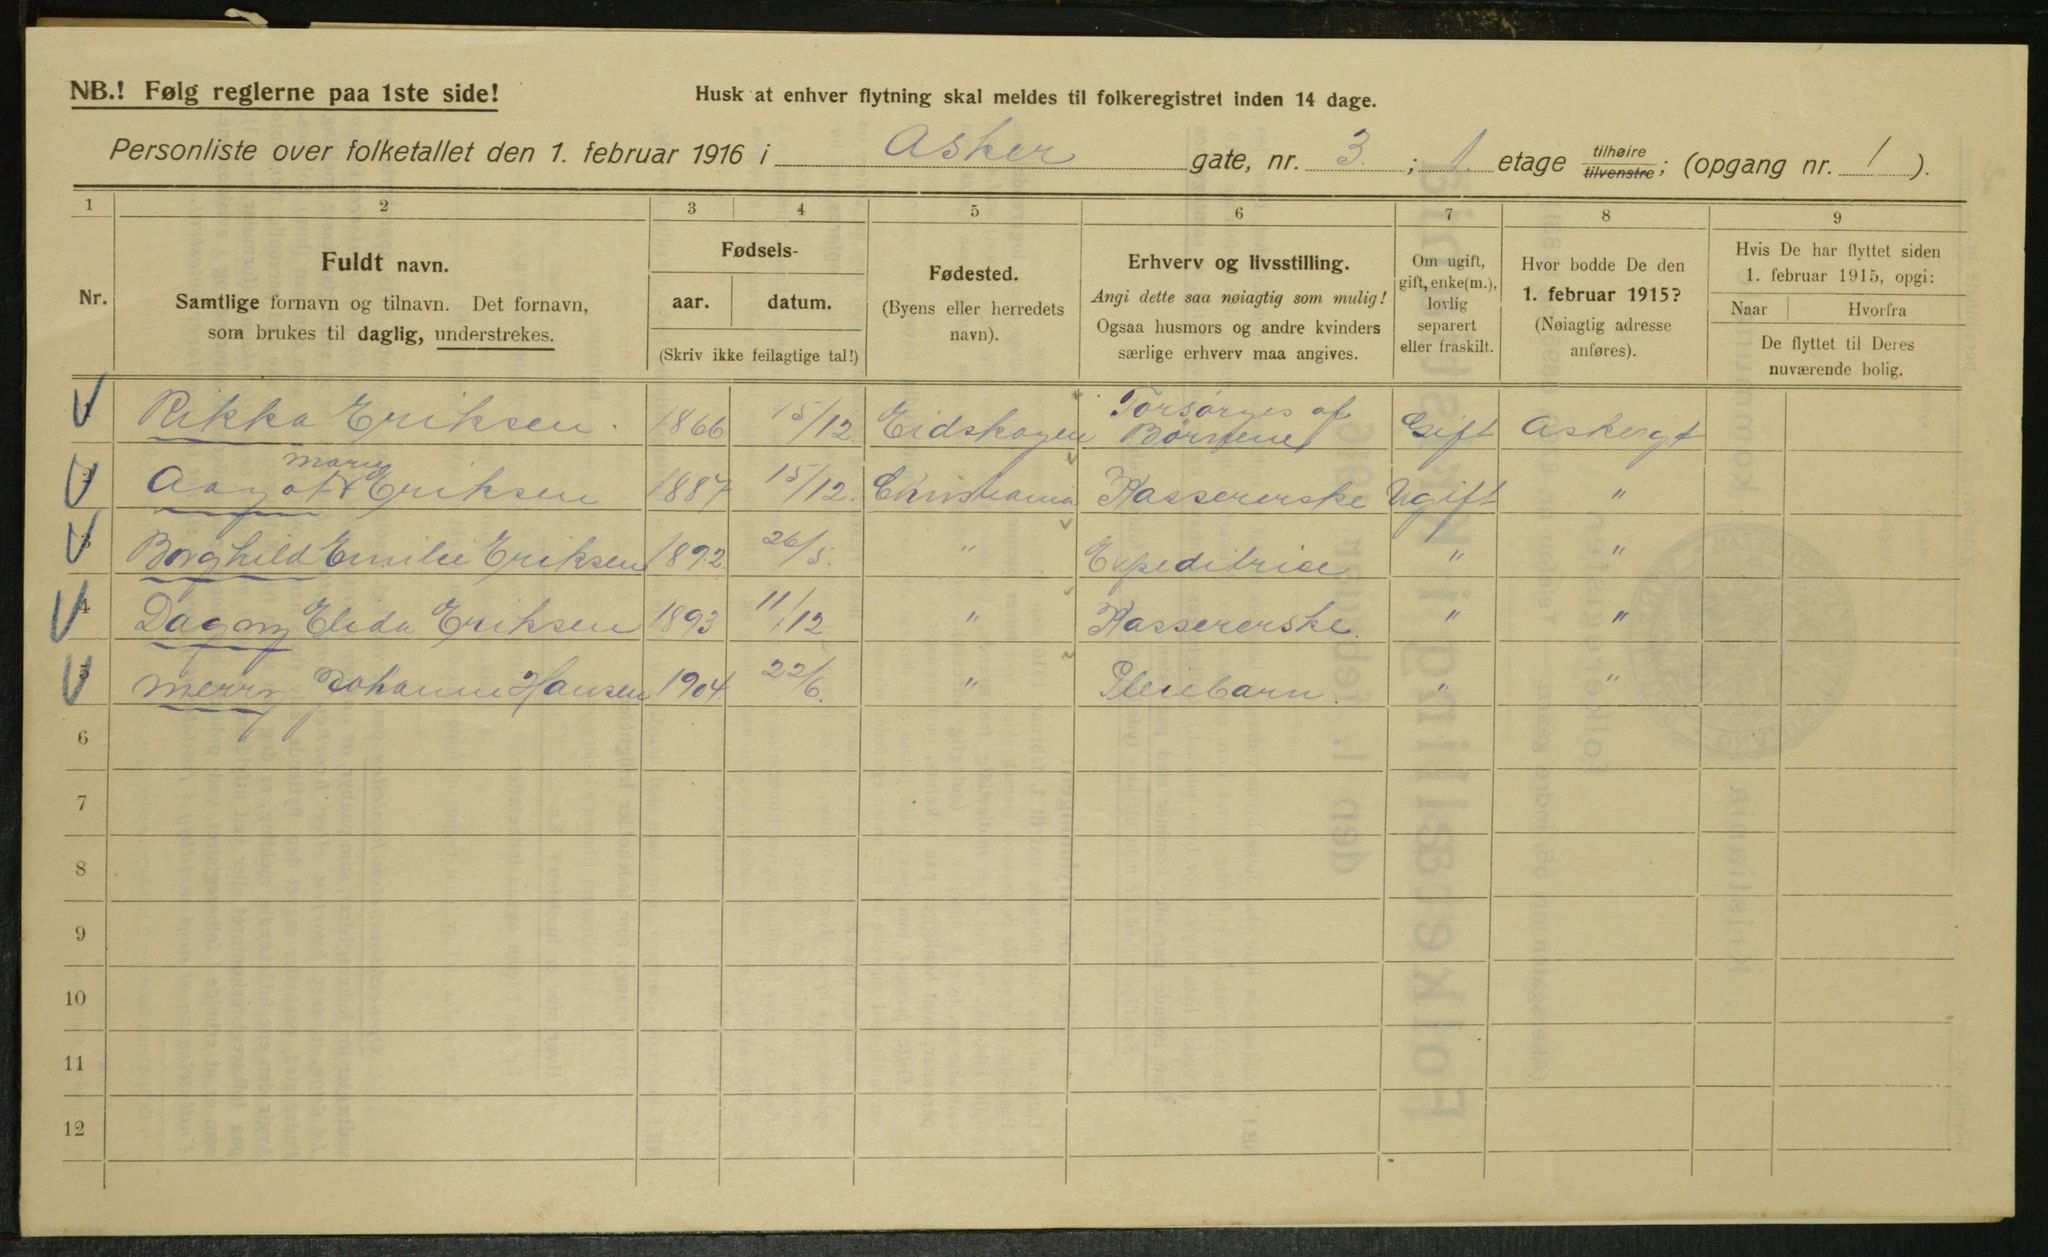 NB.! Følg reglerne paa 1ste side!
Husk at enhver flytning skal meldes til folkeregistret inden 14 dage.
Personliste over folketallet den 1. februar 1916 i Asker gate, nr. 3. ; 1. etage tilhøire tilvenstre ; (opgang nr. 1 ).
1 2 3 4 5 6 7 8 9
Nr.
Fuldt navn.
Samtlige fornavn og tilnavn. Det fornavn,
som brukes til daglig, understrekes.
Fødsels-
aar. datum.
(Skriv ikke feilagtige tal!)
Fødested.
(Byens eller herredets
navn).
Erhverv og livsstilling.
Angi dette saa nøiagtig som mulig!
Ogsaa husmors og andre kvinders
særlige erhverv maa angives.
Om ugift,
gift, enke(m.),
lovlig
separert
eller fraskilt.
Hvor bodde De den
1. februar 1915?
(Nøiagtig adresse
anføres).
Hvis De har flyttet siden
1. februar 1915, opgi:
Naar Hvorfra
De flyttet til Deres
nuværende bolig.
1 Rikka Eriksen. 1866 15/12. Eidskogen Forsørges af Børnene Gift Askergt
2 Aagot Marie Eriksen 1887 15/12. Christiania Kassererske Ugift "
3 Borghild Emilie Eriksen 1892 26/5. " Expeditrice " "
4 Dagny Elida Eriksen 1893 11/12 " Kassererske. " "
5 Merry Johanne Hansen 1904 22/6. " Pleiebarn. " "
6
7
8
9
10
11
12